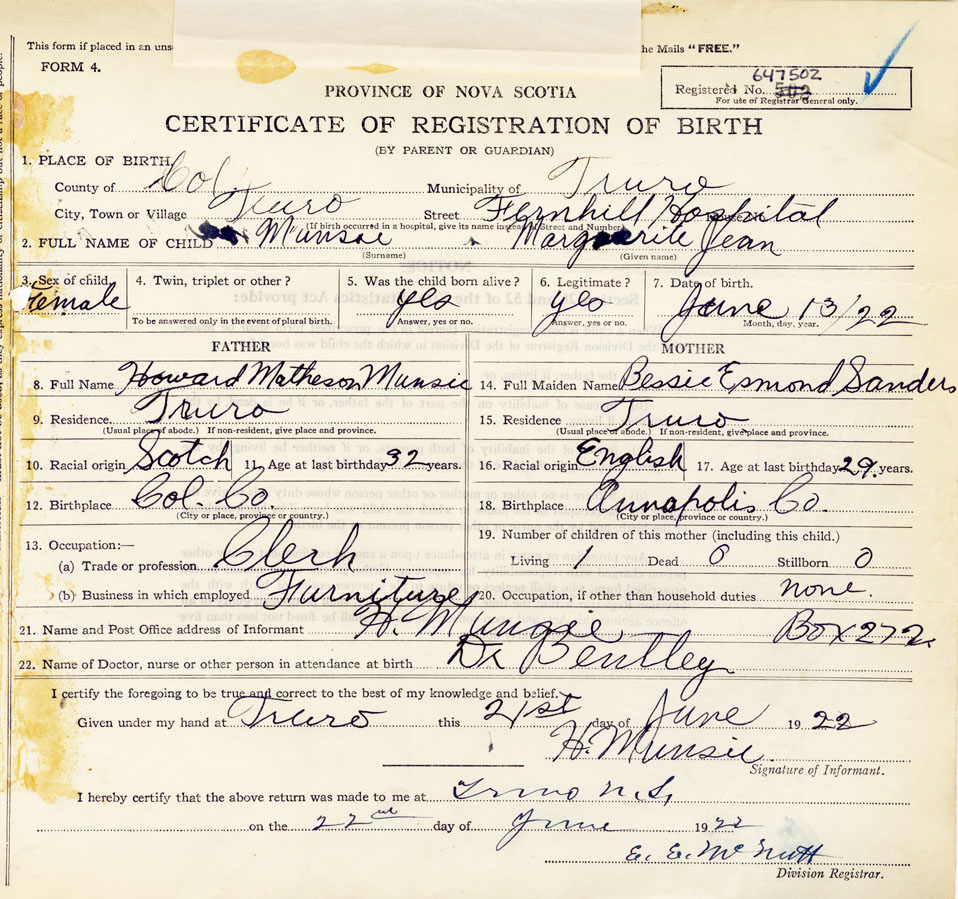 This form if placed in an uns he Mails "FREE."
FORM 4.
647502
Registered No. 502
For use of Registrar General only.
PROVINCE OF NOVA SCOTIA
CERTIFICATE OF REGISTRATION OF BIRTH
(BY PARENT OR GUARDIAN)
1. PLACE OF BIRTH
County of Col. Municipality of Truro
City, Town or Village Truro Street Fernhill Hospital
(If birth occurred in a hospital, give its name instead of Street and Number)
2. FULL NAME OF CHILD Munsie Marguerite Jean
(Surname) (Given name)
3. Sex of child 4. Twin, triplet or other? 5. Was the child born alive? 6. Legitimate? 7. Date of birth.
Female yes yes June 13/22
To be answered only in the event of plural birth. Answer, yes or no. Answer, yes or no. Month, day, year.
FATHER MOTHER
8. Full Name Howard Matheson Munsie 14. Full Maiden Name Bessie Esmond Sanders
9. Residence Truro 15. Residence Truro
(Usual place of abode.) If non-resident, give place and province. (Usual place of abode.) If non-resident, give place and province.
10. Racial origin Scotch 11. Age at last birthday 32 years. 16. Racial origin English 17. Age at last birthday 29. years.
12. Birthplace Col. Co. 18. Birthplace Annapolis Co.
(City or place, province or country.) (City or place, province or country.)
13. Occupation:— 19. Number of children of this mother (including this child.)
(a) Trade or profession Clerk Living 1 Dead 0 Stillborn 0
(b) Business in which employed Furniture 20. Occupation, if other than household duties none.
21. Name and Post Office address of Informant H. Munsie Box 272.
22. Name of Doctor, nurse or other person in attendance at birth Dr Bentley
I certify the foregoing to be true and correct to the best of my knowledge and belief.
Given under my hand at Truro this 21st day of June 1922
H. Munsie
Signature of Informant.
I hereby certify that the above return was made to me at Truro N.S,
on the 22nd day of June 1922
E. E. McNutt
Division Registrar.